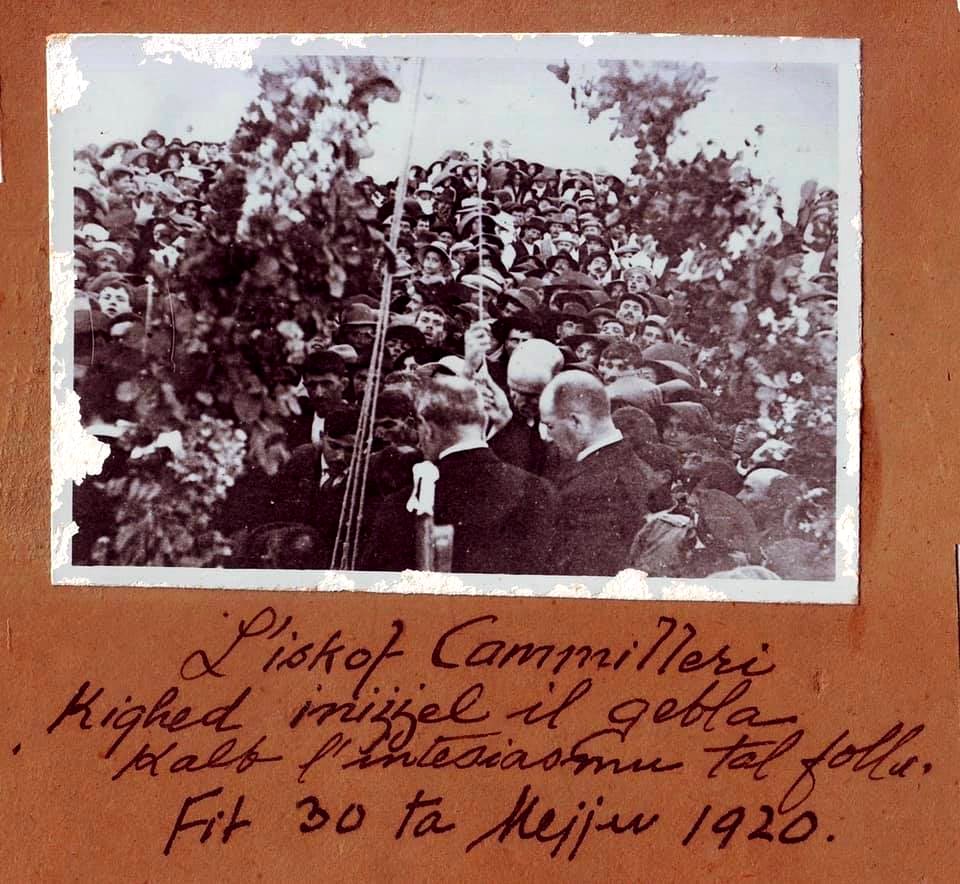 L'iskof Cammilleri
Kighed inizzel il gebla
Kalb l'intesiasmu tal folla.
Fit 30 ta Mejju 1920.